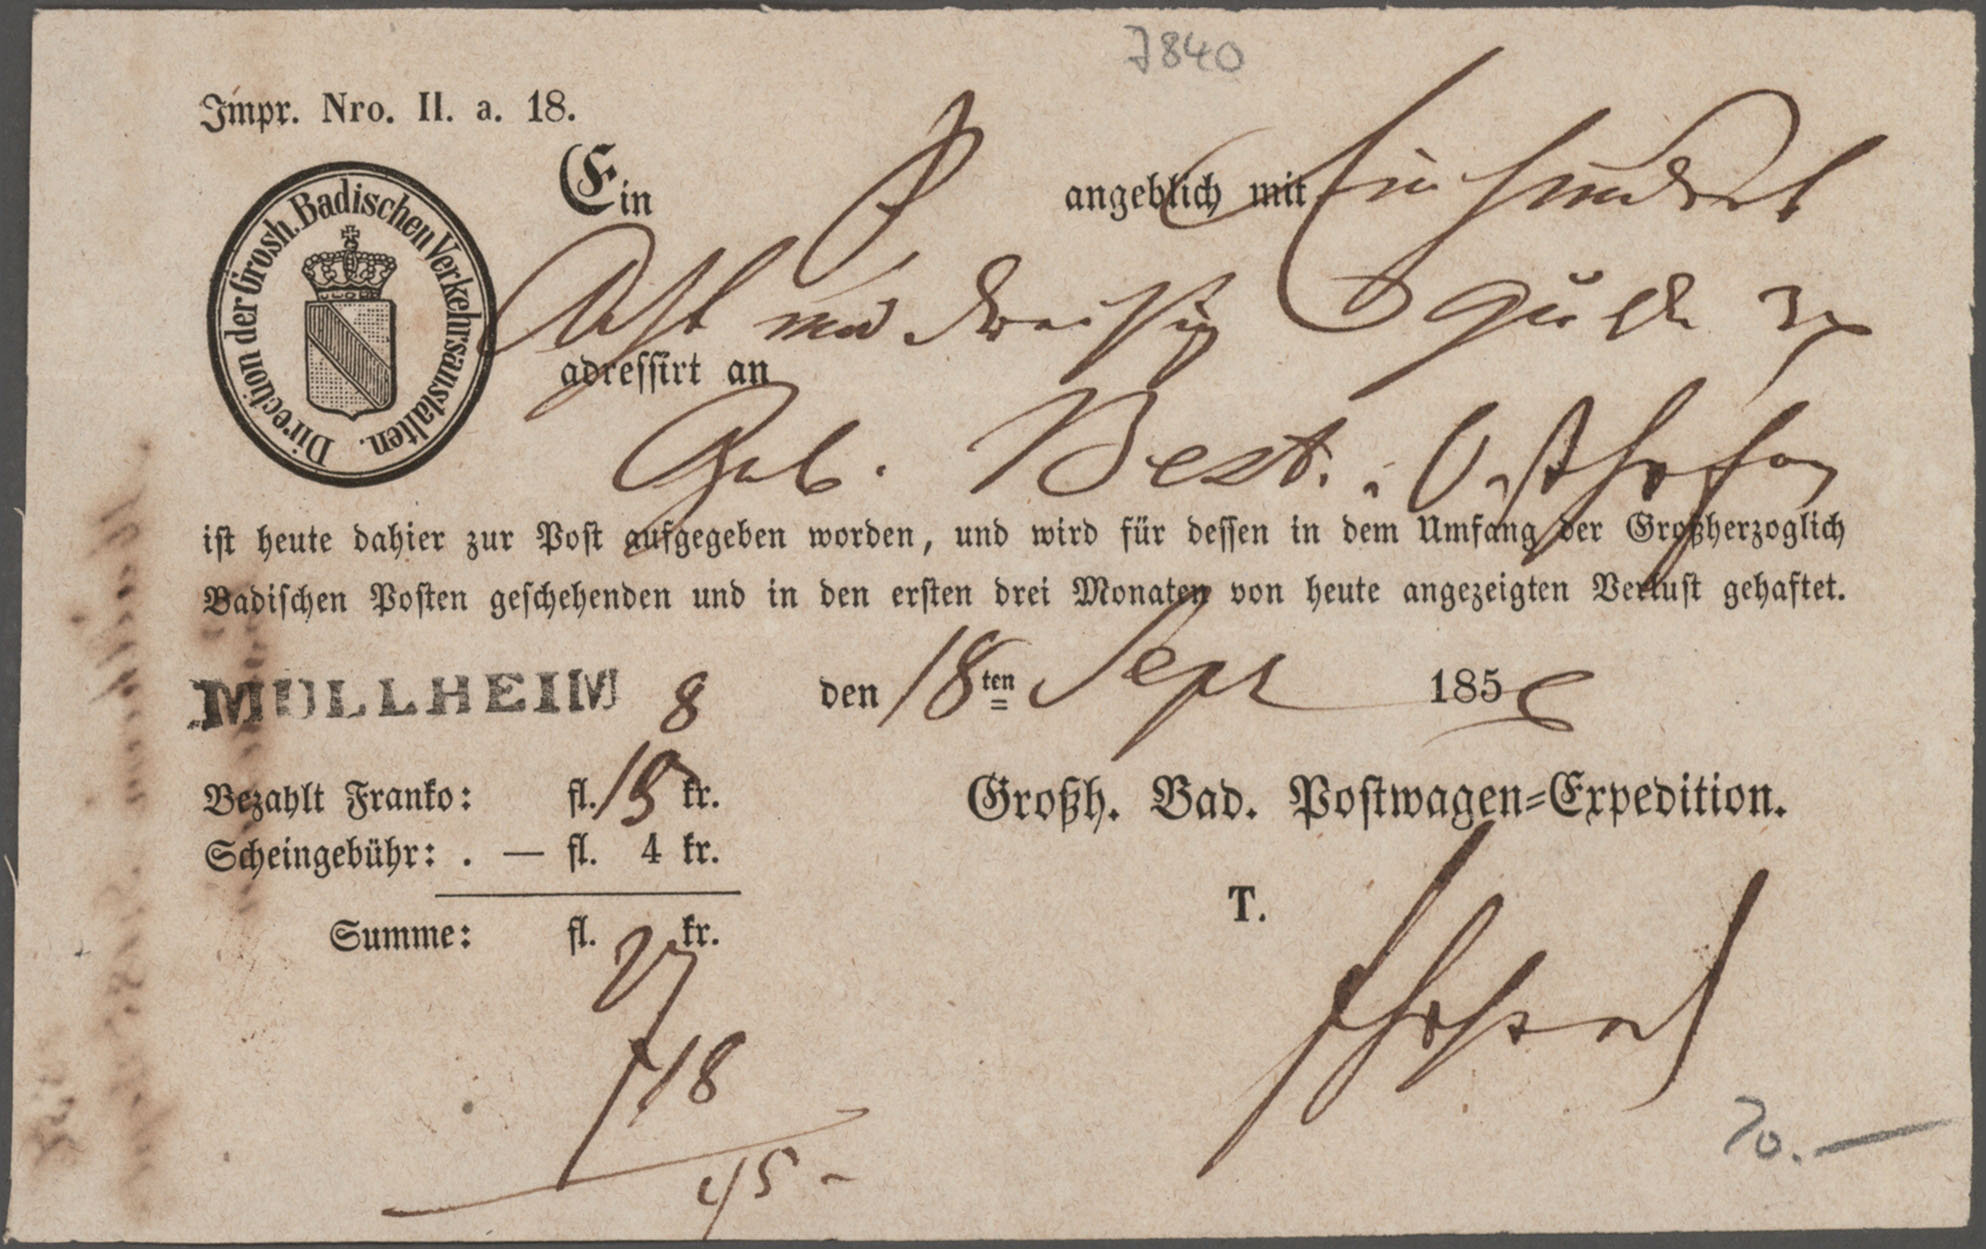 7840
Impr. Nro. II. a. 18.
Direction der Grosh. Badischen Verkehrsanstalten.
Ein P angeblich mit Einhundert
Acht und dreißig Gulden
adressirt an
Geb. Best. : Osthofen
ist heute dahier zur Post aufgegeben worden, und wird für dessen in dem Umfang der Großherzoglich
Badischen Posten geschehenden und in den ersten drei Monaten von heute angezeigten Verlust gehaftet.
MÜLLHEIM 8 den 18ten Sept 1856
Bezahlt Franko: fl. 15 kr. Großh. Bad. Postwagen=Expedition.
Scheingebühr: . — fl. 4 kr.
T.
Summe: fl. 27 kr.
18
45 -
70.—